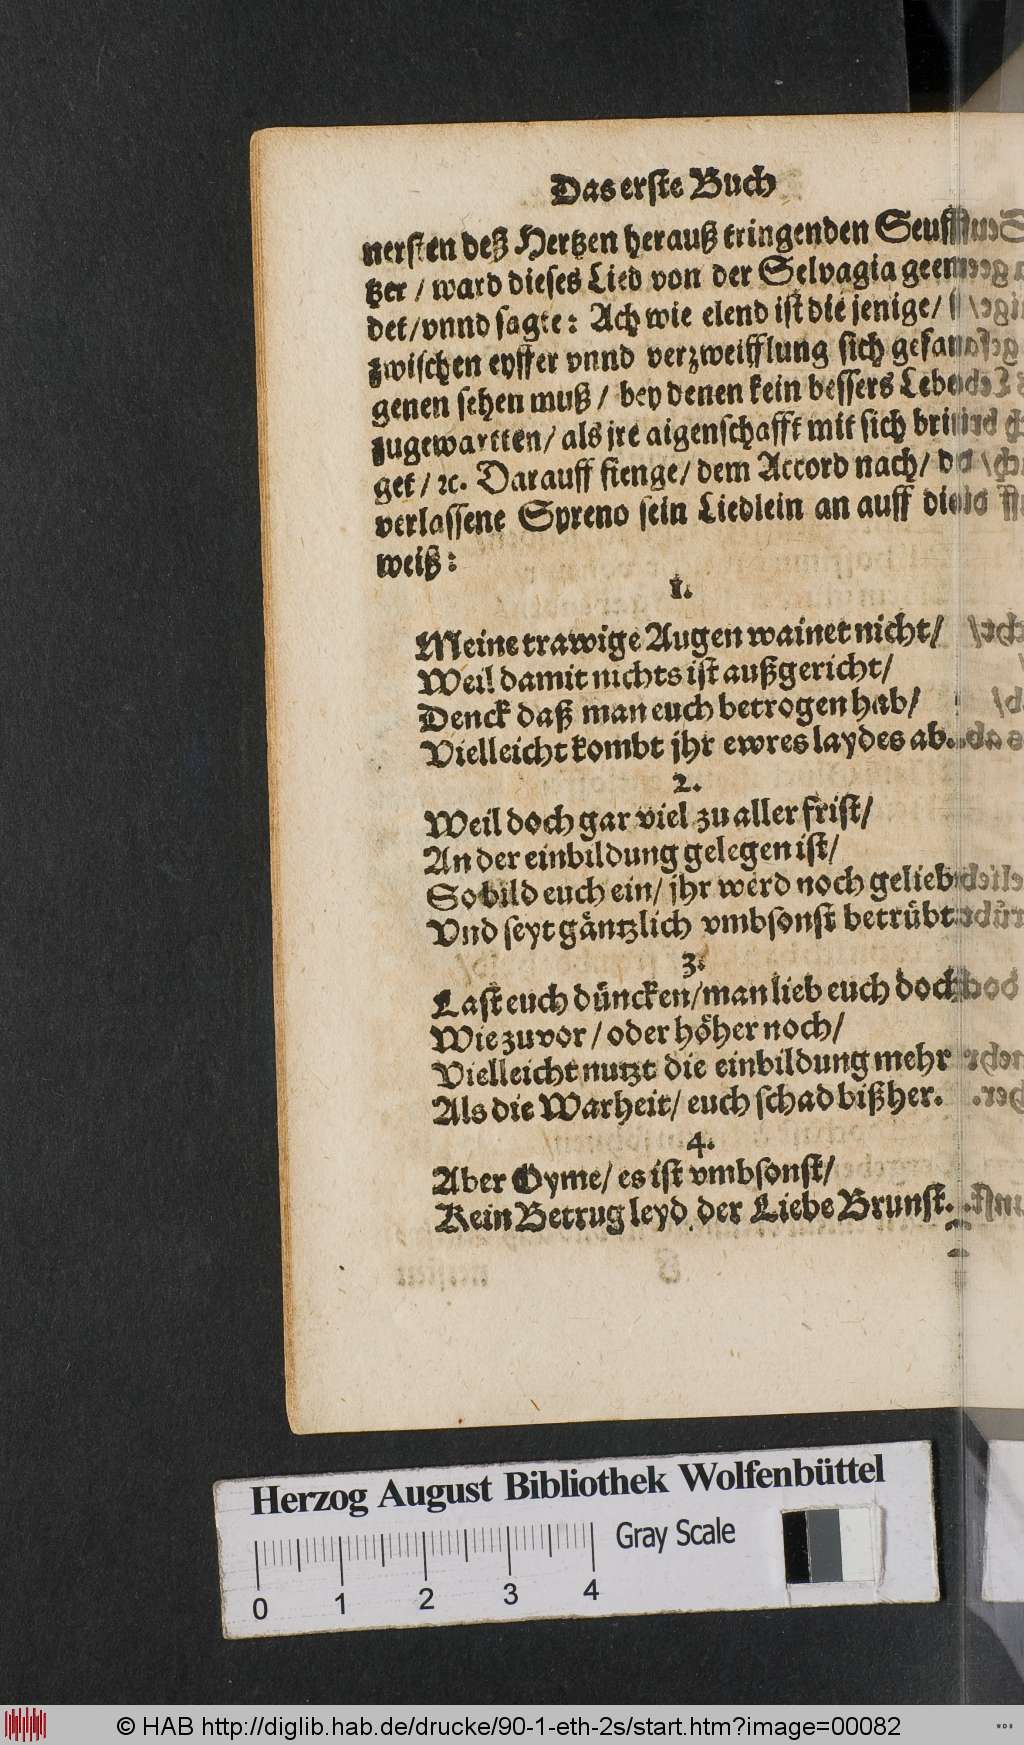 Das erste Buch
nersten deß Hertzen herauß tringenden Seuff
tzer / ward dieses Lied von der Selvagia geen
det / vnnd sagte: Ach wie elend ist die jenige /
zwischen eyffer vnnd verzweifflung sich gefan
genen sehen muß / bey denen kein bessers Lebe
zugewartten / als jre aigenschafft mit sich brin
get / ꝛc. Darauff fienge / dem Accord nach /
verlassene Syreno sein Liedlein an auff
weiß:
1.
Meine trawige Augen wainet nicht /
Weil damit nichts ist außgericht /
Denck daß man euch betrogen hab /
Vielleicht kombt jhr ewres laydes ab.
2.
Weil doch gar viel zu aller frist /
An der einbildung gelegen ist /
So bild euch ein / jhr werd noch gelieb
Vnd seyt gäntzlich vmbsonst betrübt
3.
Last euch düncken / man lieb euch doch
Wie zuvor / oder höher noch /
Vielleicht nutzt die einbildung mehr
Als die Warheit / euch schad bißher.
4.
Aber Oyme / es ist vmbsonst /
Kein Betrug leyd der Liebe Brunst.
Herzog August Bibliothek Wolfenbüttel
Gray Scale
0 1 2 3 4
© HAB http://diglib.hab.de/drucke/90-1-eth-2s/start.htm?image=00082